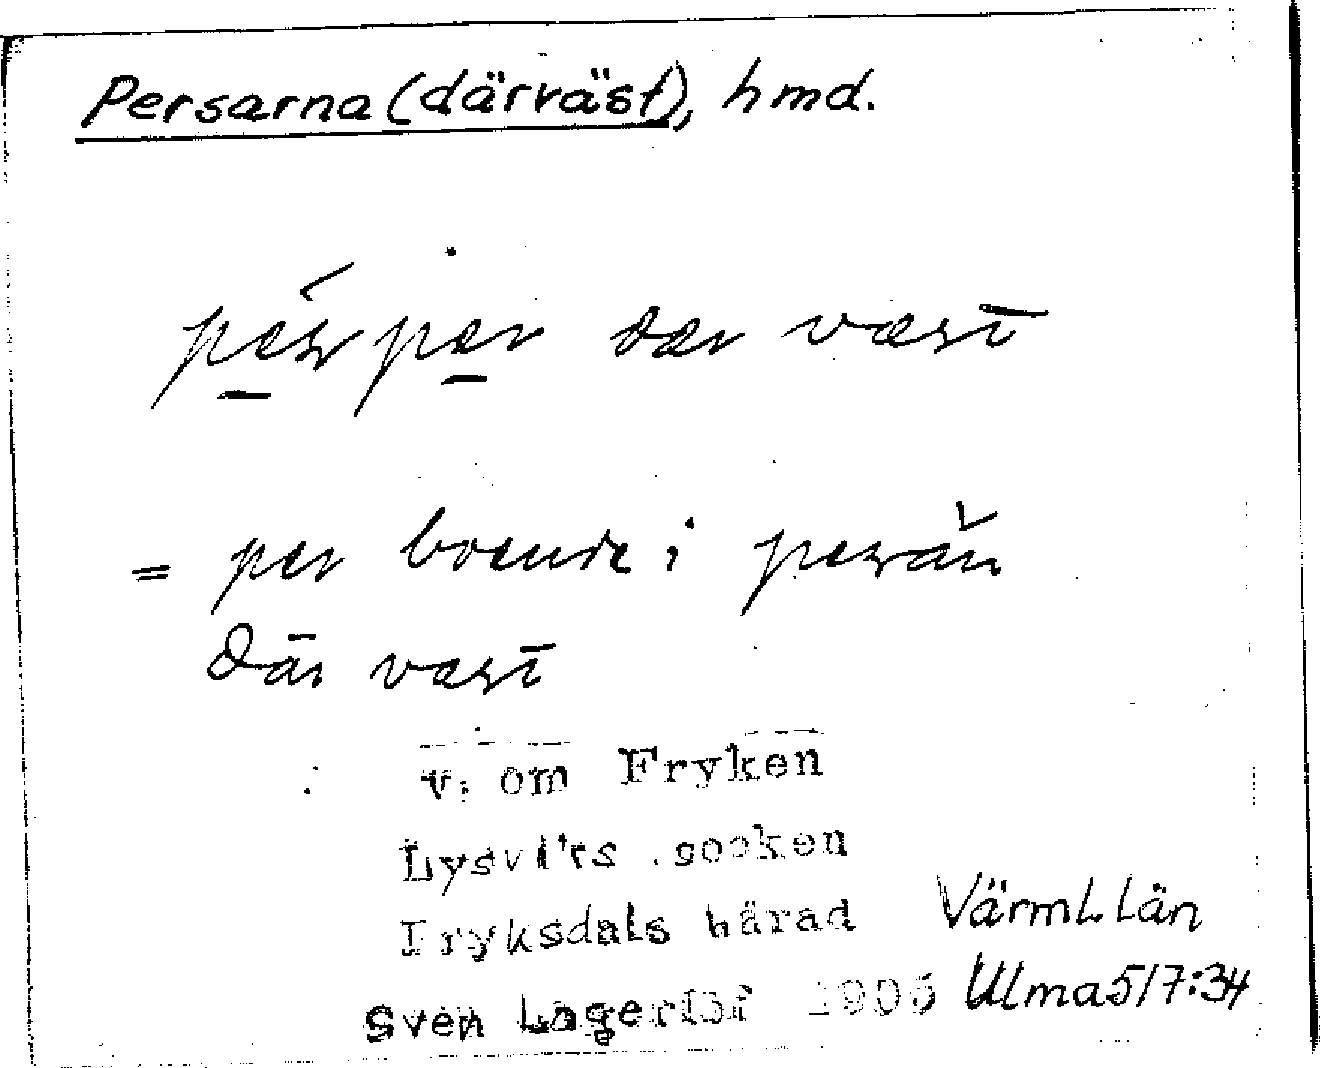 Persarna (därväst), hmd.
pærpær dær væst
= per boende i perån
där väst
v. om Fryken
Lysviks socken
Fryksdals härad Värml. län
Sven Lagerlöf 1906 Ulma 517:34